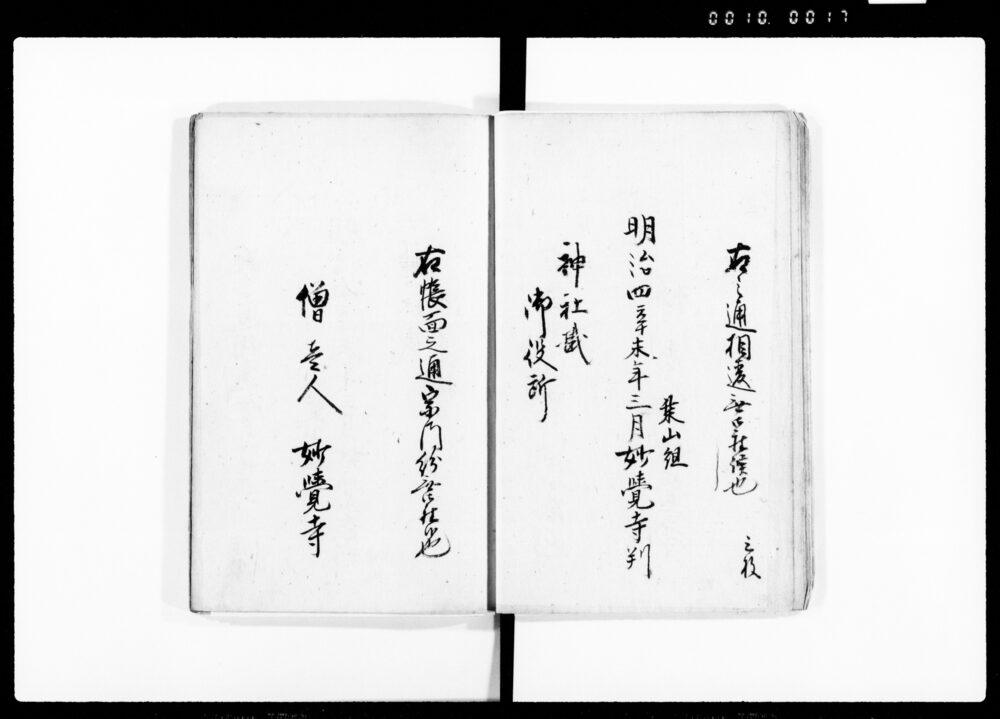 0010. 0017
右之通相違無御座候也
葉山組
明治四辛未年三月妙覺寺判
神社
御役所
右帳面之通宗門紛無御座也
僧壱人 妙覺寺